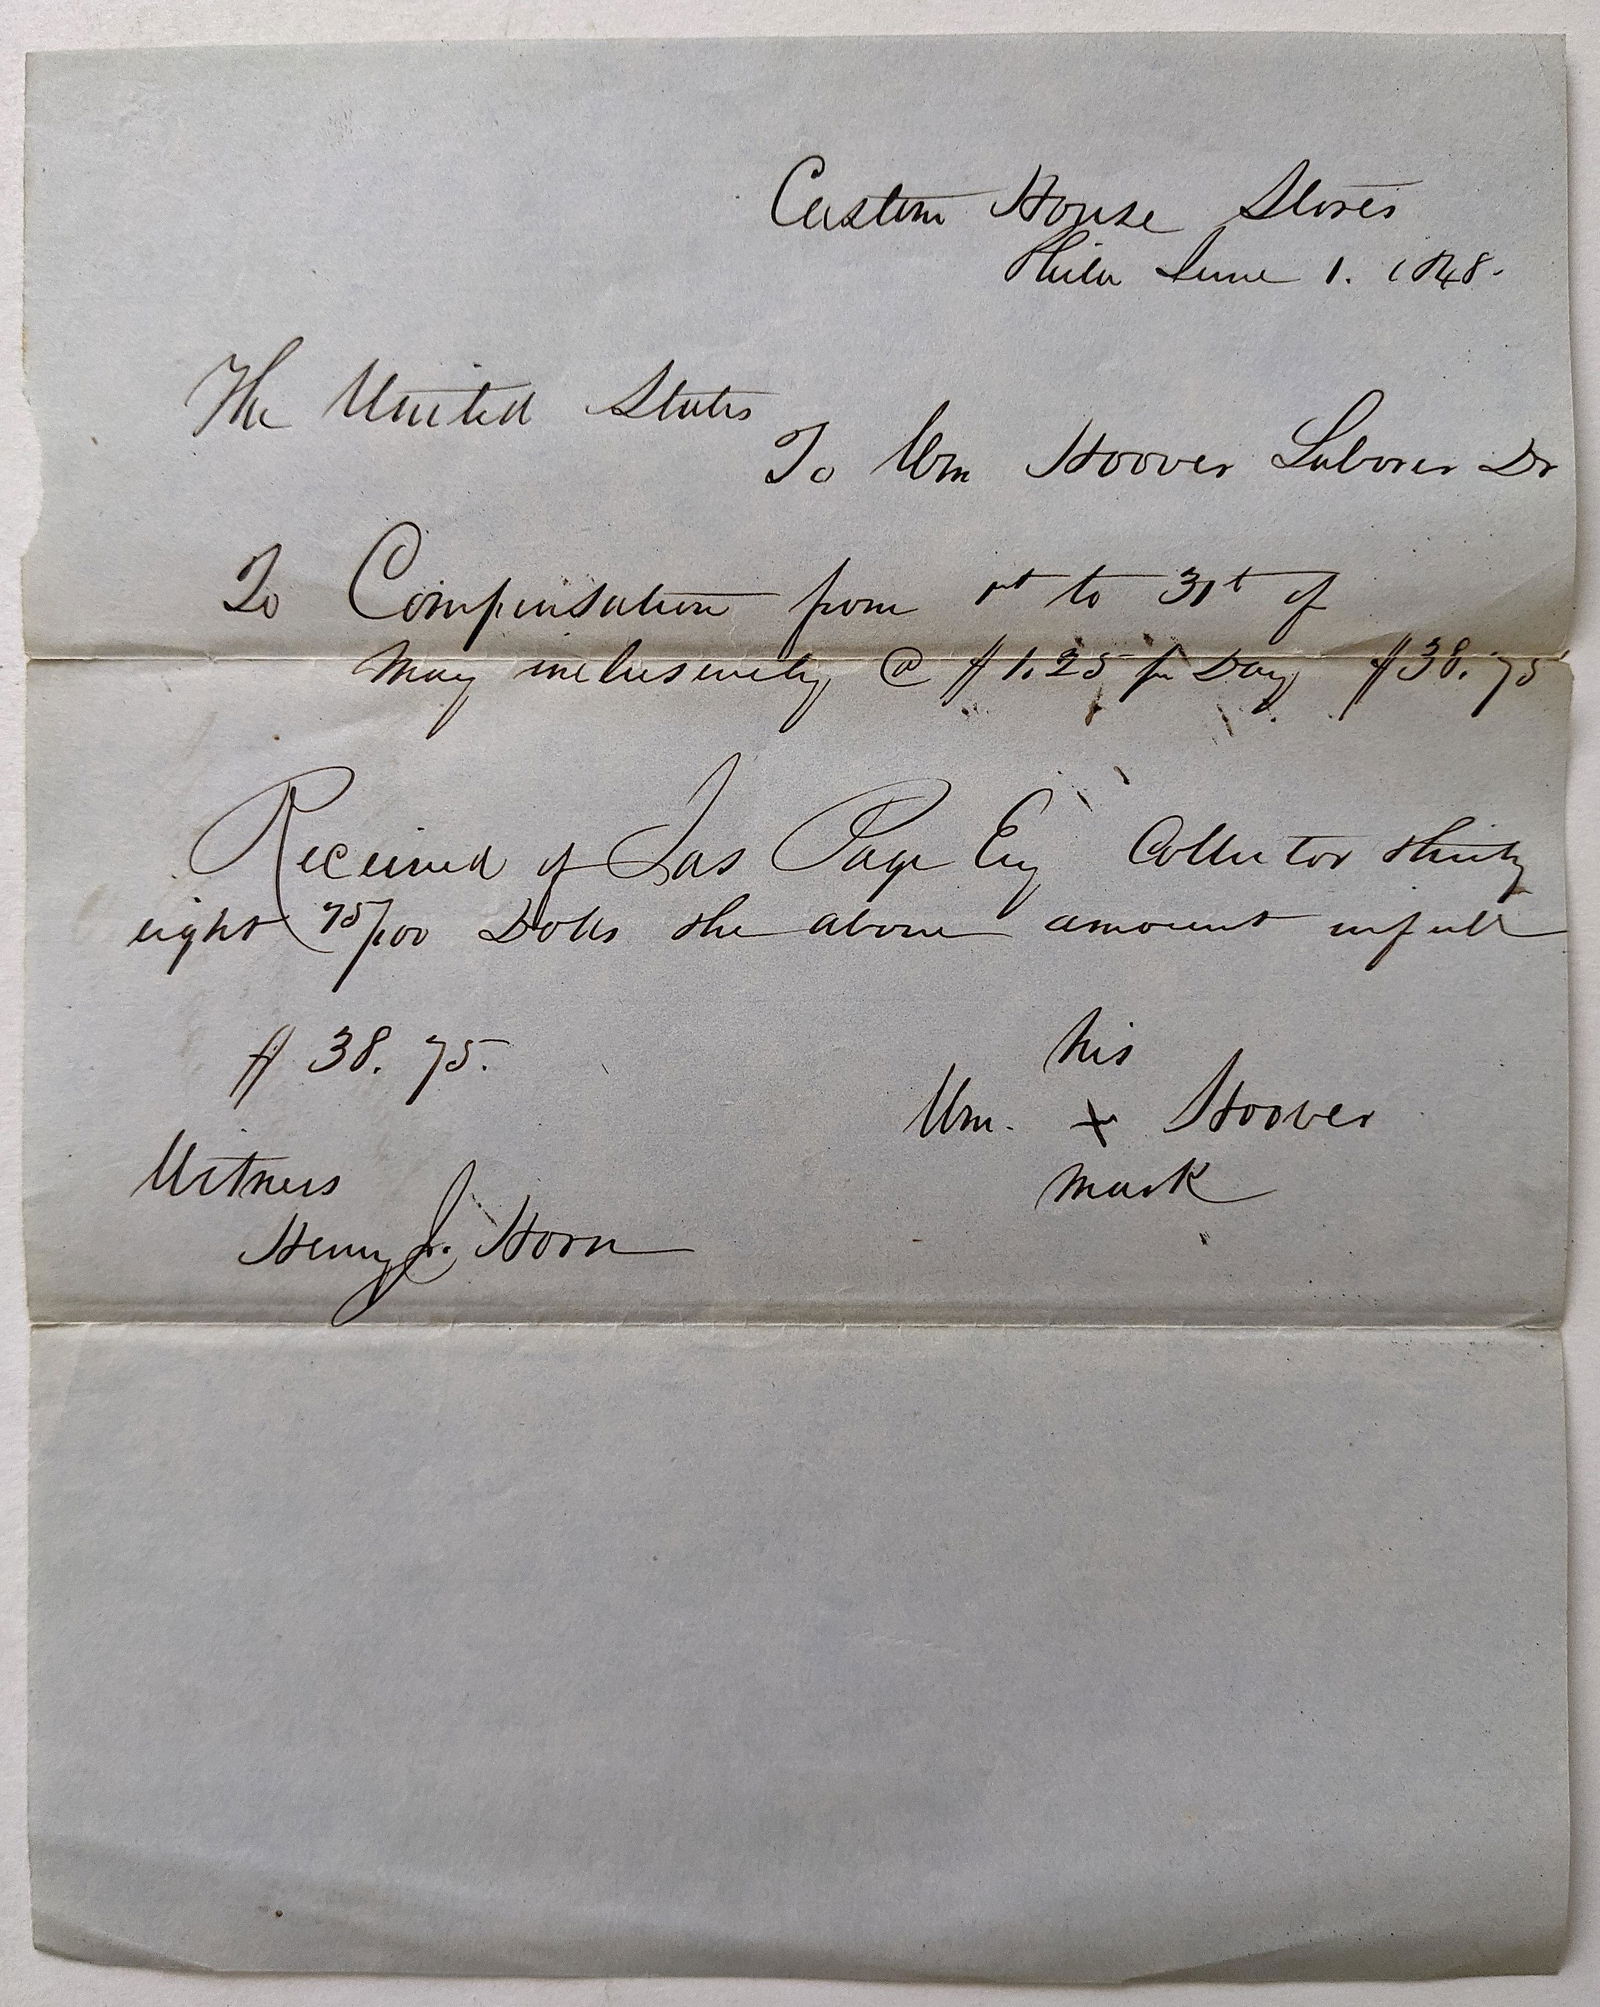 Custom House Stores
Phila June 1. 1848.
The United States
To Wm Hoover Laborer Dr
To Compensation from 1st to 31st of
May inclusively @ $1.25 pr Day $38.75
Received of Jas Page Esq Collector thirty
eight 75/100 Dolls the above amount in full
$38.75.
his
Wm. x Hoover
mark
Witness
Henry J. Horn